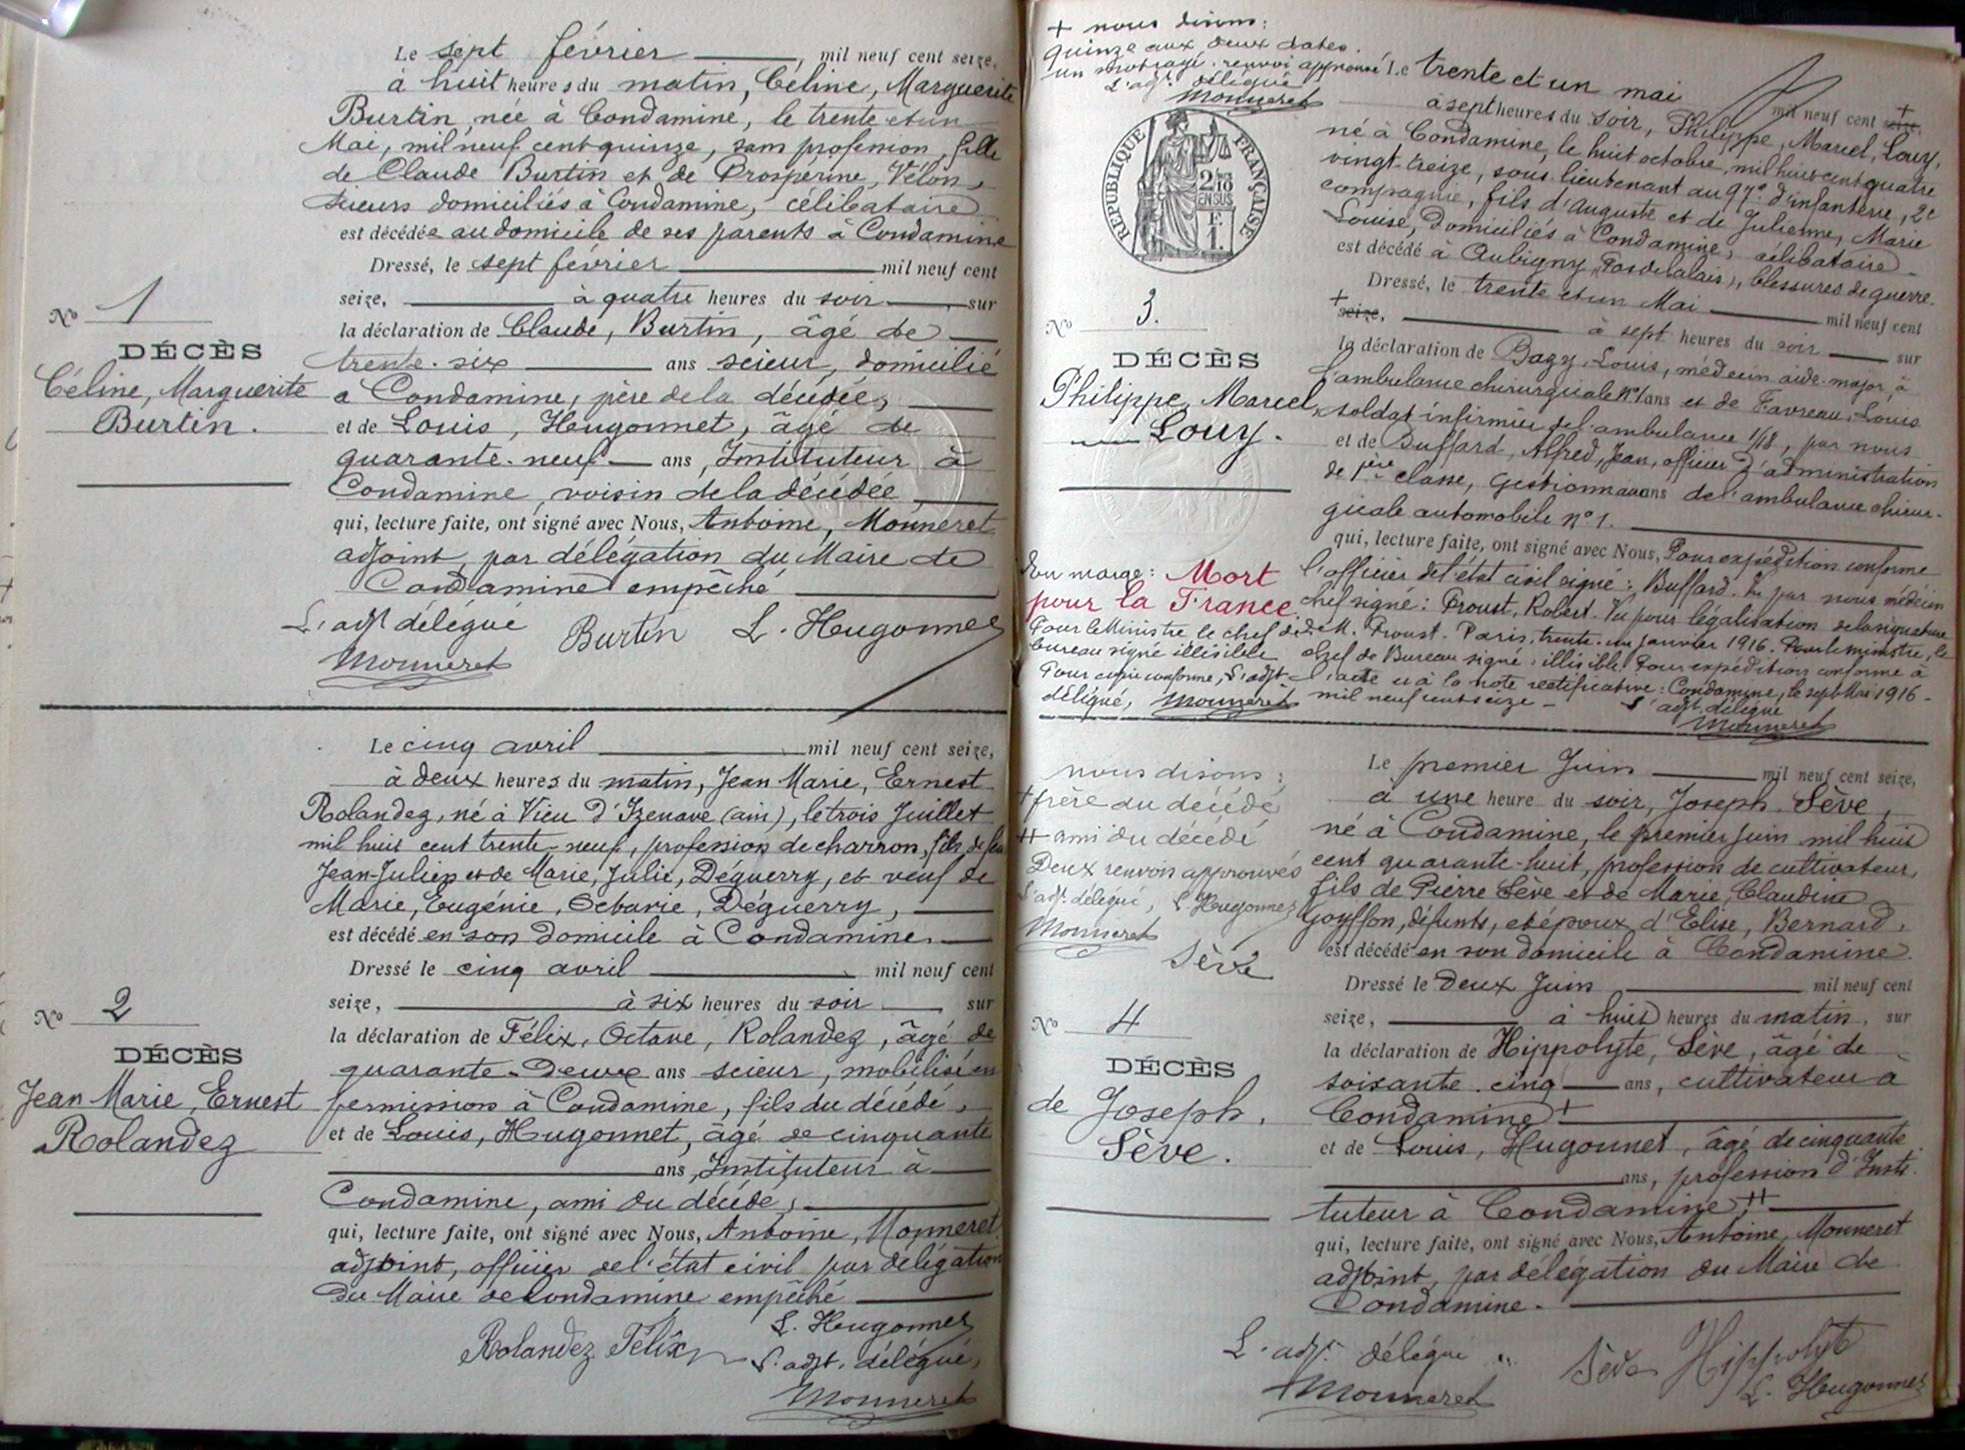 Le sept février, mil neuf cent seize,
à huit heures du matin, Céline, Marguerite
Burtin, née à Condamine, le trente et un
Mai, mil neuf cent quinze, sans profession, fille
de Claude Burtin et de Prospérine, Velon,
scieurs domiciliés à Condamine, célibataire
est décédée au domicile de ses parents à Condamine
Dressé, le sept février mil neuf cent
seize, à quatre heures du soir, sur
la déclaration de Claude, Burtin, âgé de
trente-six ans scieur, domicilié
à Condamine, père de la décédée,
et de Louis, Hugonnet, âgé de
quarante-neuf ans, Instituteur à
Condamine, voisin de la décédée
qui, lecture faite, ont signé avec Nous, Antoine, Monneret
adjoint, par délégation du Maire de
Condamine empêché
L'adjt délégué Burtin L. Hugonnet
Monneret
No 1
DÉCÈS
Céline, Marguerite
Burtin.
Le cinq avril mil neuf cent seize,
à deux heures du matin, Jean Marie, Ernest
Rolandez, né à Vieu d'Izenave (ain), le trois Juillet
mil huit cent trente-neuf, profession de charron, fils de feu
Jean-Julien et de Marie, Julie, Déguerry, et veuf de
Marie, Eugénie, Octavie, Déguerry,
est décédé en son domicile à Condamine.
Dressé le cinq avril mil neuf cent
seize, à six heures du soir, sur
la déclaration de Félix, Octave, Rolandez, âgé de
quarante-deux ans scieur, mobilisé en
permission à Condamine, fils du décédé,
et de Louis, Hugonnet, âgé de cinquante
ans, Instituteur à
Condamine, ami du décédé,
qui, lecture faite, ont signé avec Nous, Antoine, Monneret
adjoint, officier de l'état civil par délégation
du Maire de Condamine empêché
L. Hugonnet
Rolandez Félix L'adjt. délégué,
Monneret
No 2
DÉCÈS
Jean Marie, Ernest
Rolandez
+ nous disons:
quinze aux deux dates.
un renvoi approuvé
L'adjt. délégué
Monneret
RÉPUBLIQUE FRANÇAISE
2/10
EN SUS
F
1.
Le trente et un mai
mil neuf cent seize +
à sept heures du soir, Philippe, Marcel, Louy,
né à Condamine, le huit octobre, mil huit cent quatre
vingt-treize, sous lieutenant au 97e d'infanterie, 2e
compagnie, fils d'Auguste et de Julienne, Marie
Louise, domiciliés à Condamine, célibataire
est décédé à Aubigny (Pas de Calais), blessures de guerre.
Dressé, le trente et un Mai mil neuf cent
+ seize, à sept heures du soir sur
la déclaration de Bazy, Louis, médecin aide-major, à
l'ambulance chirurgicale No 1 ans et de Favreau, Louis
soldat infirmier de l'ambulance 1/18, par nous
et de Buffard, Alfred, Jean, officier d'administration
de 1ère classe, Gestionnaire ans de l'ambulance chirur-
gicale automobile no 1.
qui, lecture faite, ont signé avec Nous, Pour expédition conforme
l'officier de l'état civil signé: Buffard. Vu par nous médecin
chef signé: Proust, Robert. Vu pour légalisation de la signature
de M. Proust. Paris, trente-un Janvier 1916. Pour le ministre, le
chef de Bureau signé: illisible. Pour expédition conforme à
l'acte et à la note rectificative: Condamine, le sept Mai 1916
mil neuf cent seize
L'adjt. délégué
Monneret
No 3.
DÉCÈS
Philippe, Marcel,
Louy.
En marge: Mort
pour la France.
Pour le Ministre le chef de
bureau signé illisible
Pour copie conforme, L'adjt.
délégué, Monneret
nous disons:
+ frère du décédé
++ ami du décédé
Deux renvois approuvés
L'adjt. délégué, L. Hugonnet
Monneret
Sève
Le premier Juin mil neuf cent seize,
à une heure du soir, Joseph Sève,
né à Condamine, le premier Juin mil huit
cent quarante-huit, profession de cultivateur,
fils de Pierre Sève et de Marie, Claudine
Goyffon, défunts, et époux d'Elise, Bernard,
est décédé en son domicile à Condamine.
Dressé le deux Juin mil neuf cent
seize, à huit heures du matin, sur
la déclaration de Hippolyte, Sève, âgé de
soixante-cinq ans, cultivateur à
Condamine +
et de Louis, Hugonnet, âgé de cinquante
ans, profession d'Insti-
tuteur à Condamine, ++
qui, lecture faite, ont signé avec Nous, Antoine, Monneret
adjoint, par délégation du Maire de
Condamine.
L'adjt. délégué Sève Hippolyte
Monneret L. Hugonnet
No 4
DÉCÈS
de Joseph,
Sève.